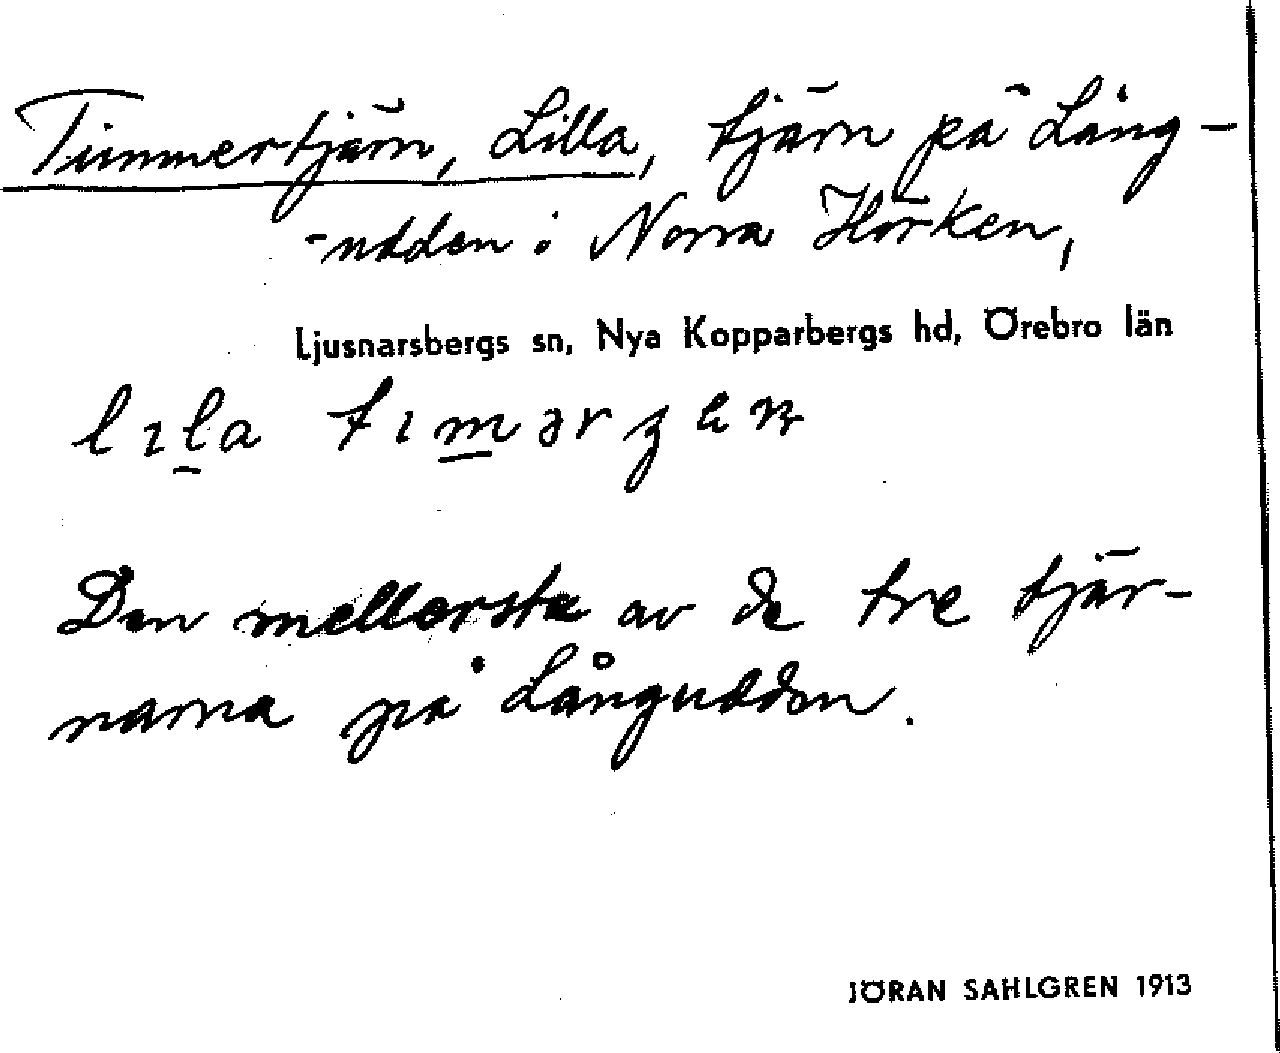 Timmertjärn, Lilla, tjärn på Lång-
-udden i Norra Hörken,
Ljusnarsbergs sn, Nya Kopparbergs hd, Örebro län
lıla
Den mellersta av de tre tjär-
narna på Långudden.
JÖRAN SAHLGREN 1913